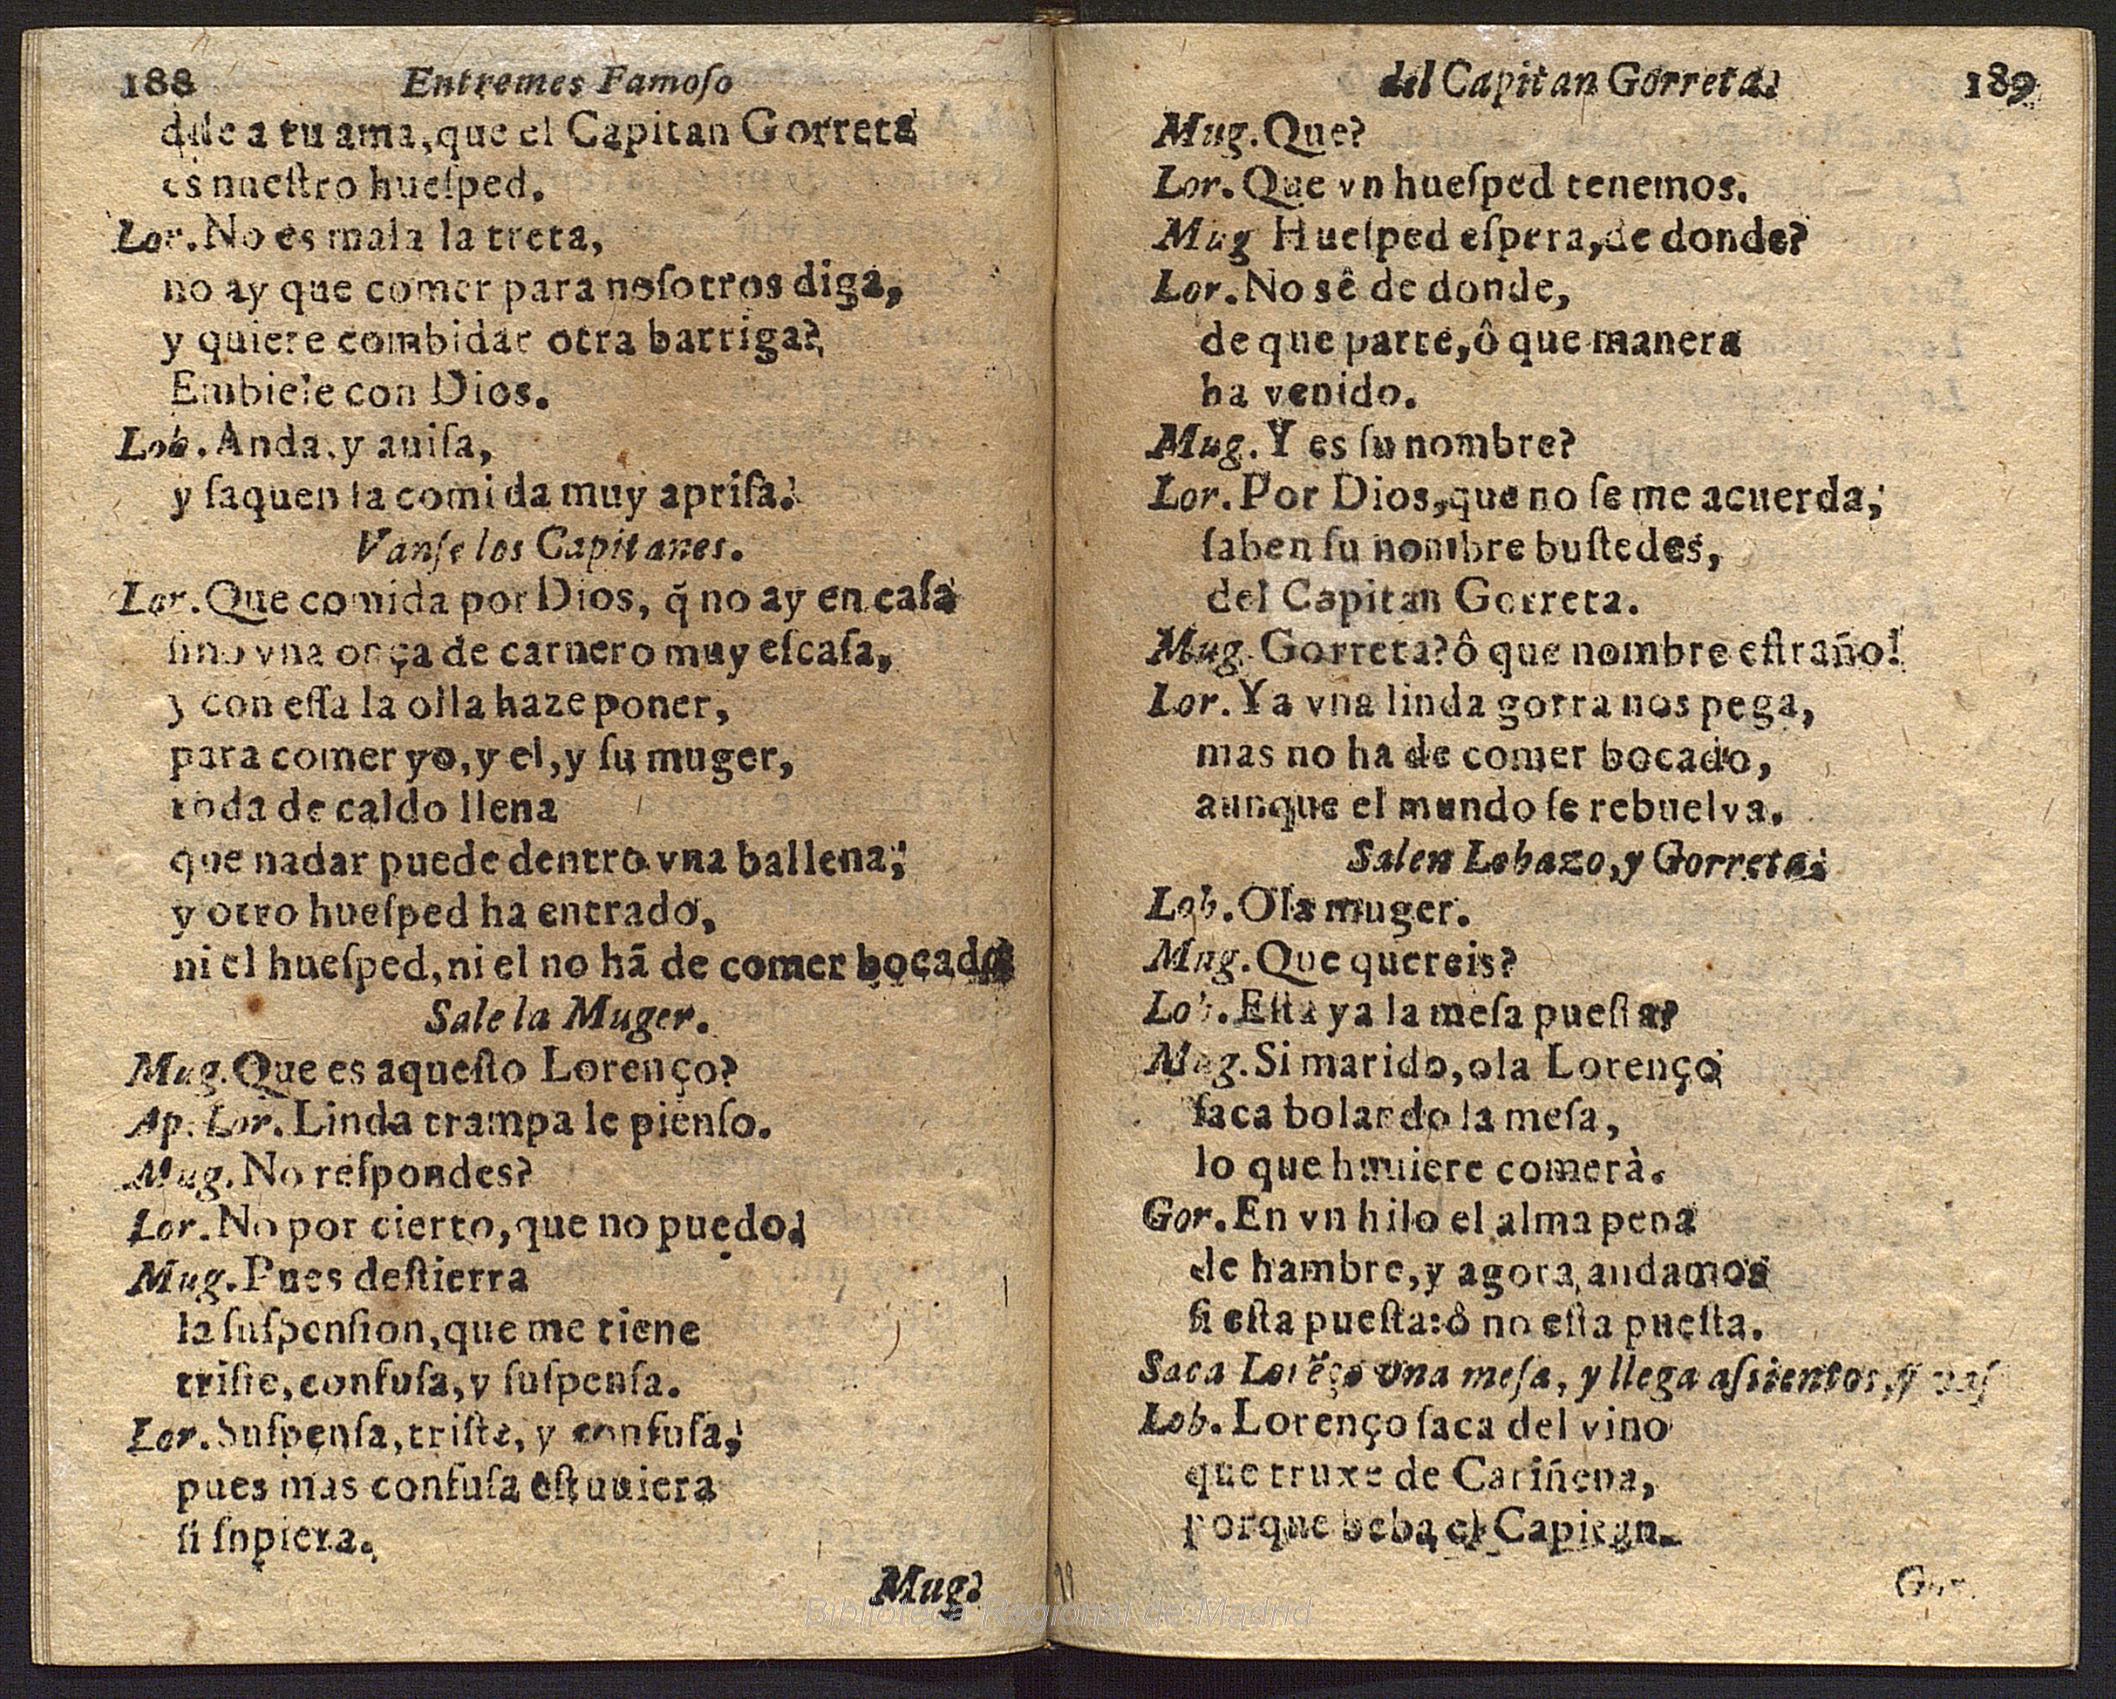 188 Entremes Famoſo
dile a tu ama, que el Capitan Gorreta
es nueſtro hueſped.
Lor. No es mala la treta,
no ay que comer para noſotros diga,
y quiere combidar otra barriga?
Embiele con Dios.
Lob. Anda, y auiſa,
y ſaquen la comida muy apriſa.
Vanſe los Capitanes.
Lor. Que comida por Dios, q̃ no ay en caſa
ſino vna onça de carnero muy eſcaſa,
y con eſſa la olla haze poner,
para comer yo, y el, y ſu muger,
toda de caldo llena
que nadar puede dentro vna ballena;
y otro hueſped ha entrado,
ni el hueſped, ni el no hã de comer bocado
Sale la Muger.
Mug. Que es aqueſto Lorenço?
Ap. Lor. Linda trampa le pienſo.
Mug. No reſpondes?
Lor. No por cierto, que no puedo.
Mug. Pues deſtierra
la ſuſpenſion, que me tiene
triſte, confuſa, y ſuſpenſa.
Lor. Suſpenſa, triſte, y confuſa,
pues mas confuſa eſtuuiera
ſi ſupiera.
Mug.
del Capitan Gorreta. 189
Mug. Que?
Lor. Que vn hueſped tenemos.
Mug Hueſped eſpera, de donde?
Lor. No sê de donde,
de que parte, ô que manera
ha venido.
Mug. Y es ſu nombre?
Lor. Por Dios, que no ſe me acuerda;
ſaben ſu nombre buſtedes,
del Capitan Gorreta.
Mug. Gorreta? ô que nombre eſtraño!
Lor. Ya vna linda gorra nos pega,
mas no ha de comer bocado,
aunque el mundo ſe rebuelva.
Salen Lobazo, y Gorreta.
Lob. Ola muger.
Mug. Que quereis?
Lob. Eſta ya la meſa pueſta?
Mug. Si marido, ola Lorenço
ſaca bolando la meſa,
lo que huuiere comerà.
Gor. En vn hilo el alma pena
de hambre, y agora andamos
ſi eſta pueſta: ô no eſta pueſta.
Saca Lorẽço vna meſa, y llega aſsientos, y
Lob. Lorenço ſaca del vino
que truxe de Cariñena,
porque beba el Capitan.
Gor.
Biblioteca Regional de Madrid